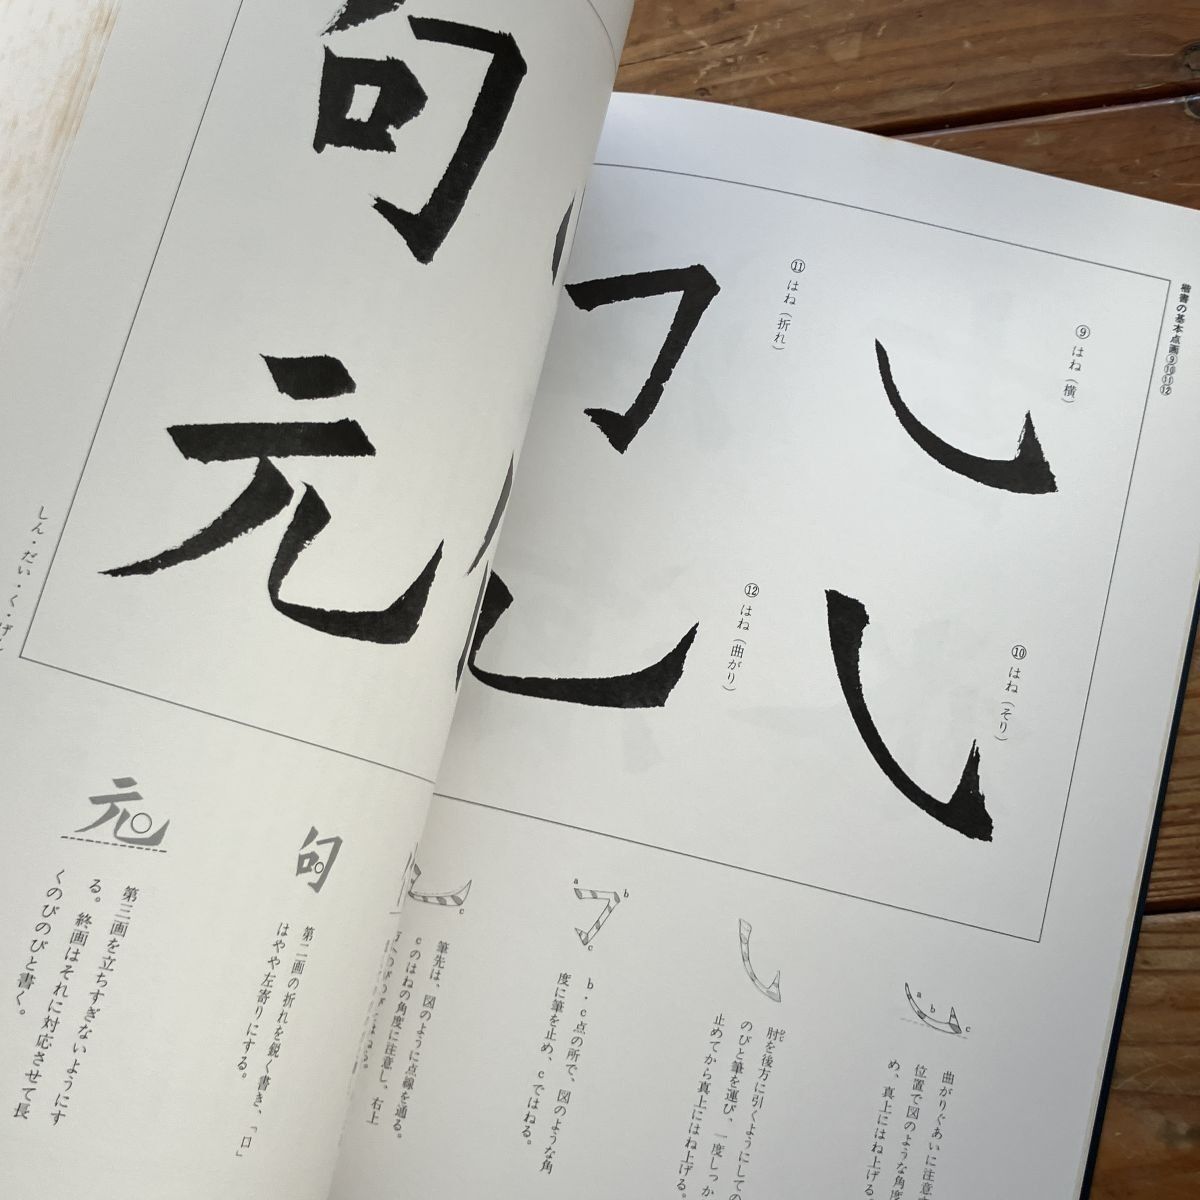 楷書の基本点画⑨⑩⑪⑫
⑨ はね（横）
⑩ はね（そり）
⑪ はね（折れ）
⑫ はね（曲がり）
a
b
c
曲がりぐあいに注意
位置で図のような角度
め、真上にはね上げる。
肘を後方に引くようにしての
ひじ
のびと筆を運び、一度しっか
止めてから真上にはね上げる。
a
b
c
b・c点の所で、図のような角
度に筆を止め、cではねる。
c
筆先は、図のように点線を通る。
cのはねの角度に注意し、右上
句
元
しん・だい・く・げん
句
第二画の折れを鋭く書き、「口」
はやや左寄りにする。
元
第三画を立ちすぎないようにす
る。終画はそれに対応させて長
くのびのびと書く。